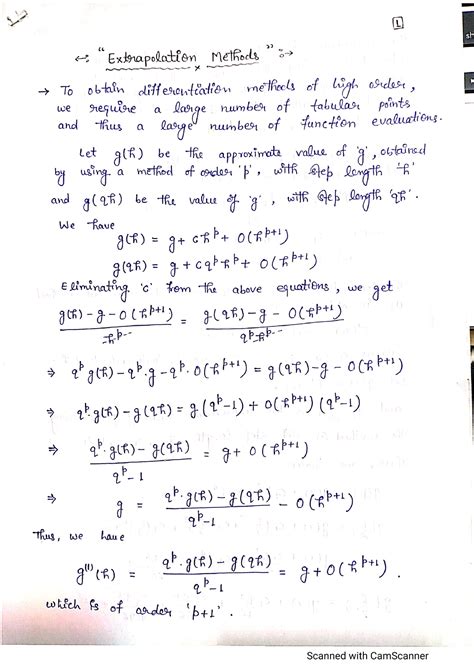 1
"Extrapolation Methods"
→ To obtain differentiation methods of high order,
we require a large number of tabular points
and thus a large number of function evaluations.
Let g(h) be the approximate value of 'g', obtained
by using a method of order 'p', with step length 'h'
and g(qh) be the value of 'g', with step length 'qh'.
We have
g(h) = g + ch^p + O(h^{p+1})
g(qh) = g + cq^p h^p + O(h^{p+1})
Eliminating 'c' from the above equations, we get
(g(h) - g - O(h^{p+1})) / h^p = (g(qh) - g - O(h^{p+1})) / (q^p h^p)
⇒ q^p g(h) - q^p · g - q^p · O(h^{p+1}) = g(qh) - g - O(h^{p+1})
⇒ q^p · g(h) - g(qh) = g(q^p - 1) + O(h^{p+1})(q^p - 1)
⇒ (q^p · g(h) - g(qh)) / (q^p - 1) = g + O(h^{p+1})
⇒ g = (q^p · g(h) - g(qh)) / (q^p - 1) - O(h^{p+1})
Thus, we have
g^{(1)}(h) = (q^p · g(h) - g(qh)) / (q^p - 1) = g + O(h^{p+1}).
which is of order 'p+1'.
Scanned with CamScanner